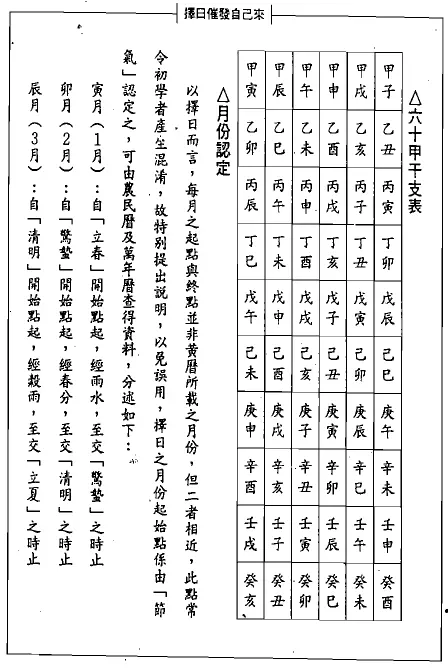 擇日催發自己來
△六十甲干支表
甲子 乙丑 丙寅 丁卯 戊辰 己巳 庚午 辛未 壬申 癸酉
甲戌 乙亥 丙子 丁丑 戊寅 己卯 庚辰 辛巳 壬午 癸未
甲申 乙酉 丙戌 丁亥 戊子 己丑 庚寅 辛卯 壬辰 癸巳
甲午 乙未 丙申 丁酉 戊戌 己亥 庚子 辛丑 壬寅 癸卯
甲辰 乙巳 丙午 丁未 戊申 己酉 庚戌 辛亥 壬子 癸丑
甲寅 乙卯 丙辰 丁巳 戊午 己未 庚申 辛酉 壬戌 癸亥
△月份認定
以擇日而言，每月之起點與終點並非黃曆所載之月份，但二者相近，此點常
令初學者產生混淆，故特別提出說明，以免誤用，擇日之月份起始點係由「節
氣」認定之，可由農民曆及萬年曆查得資料，分述如下：
寅月（1月）：自「立春」開始點起，經雨水，至交「驚蟄」之時止
卯月（2月）：自「驚蟄」開始點起，經春分，至交「清明」之時止
辰月（3月）：自「清明」開始點起，經穀雨，至交「立夏」之時止